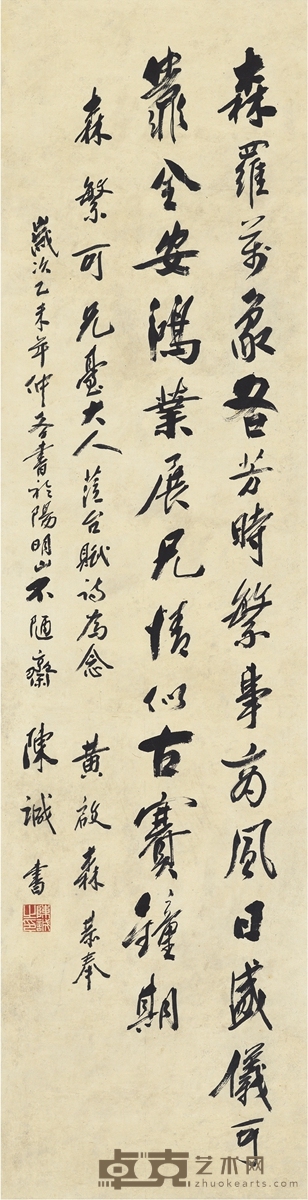 森羅萬象春芳時繁事高風日盛儀可
靠全安鴻業展兄情似古賽鐘期
森繁可兄臺大人蒞台賦詩為念 黃啟森恭奉
歲次乙未年仲春書於陽明山不陋齋 陳誠書
卓克艺术网
zhuokearts.com